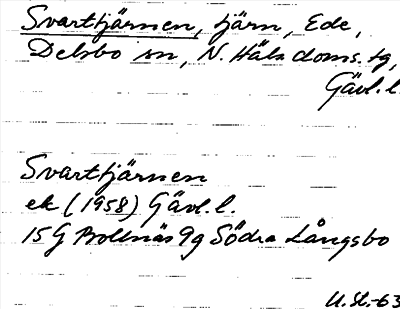 Svarttjärnen, tjärn, Ede,
Delsbo sn, N. Häls doms. tg,
Gävl. l.
Svarttjärnen
ek (1958) Gävl. l.
15G Bollnäs 9g Södra Långsbo
U. St. -63